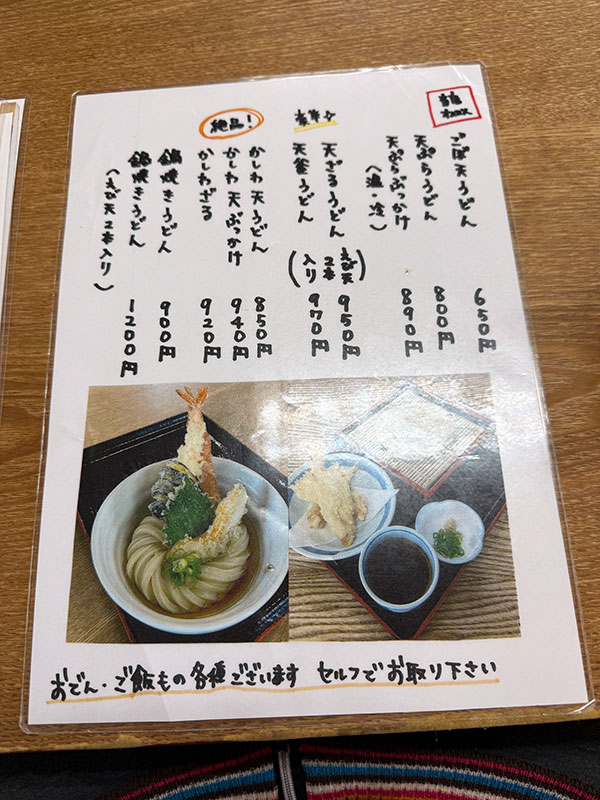 ごぼ天うどん 650円
天ぷらうどん 800円
天ぷらぶっかけ 890円
(温・冷)
天ざるうどん 950円
天釜うどん 970円
(えび天2本入り)
絶品!
かしわ天うどん 850円
かしわ天ぶっかけ 940円
かしわざる 920円
鍋焼きうどん 900円
鍋焼きうどん 1200円
(えび天2本入り)
おでん・ご飯もの各種ございます セルフでお取り下さい